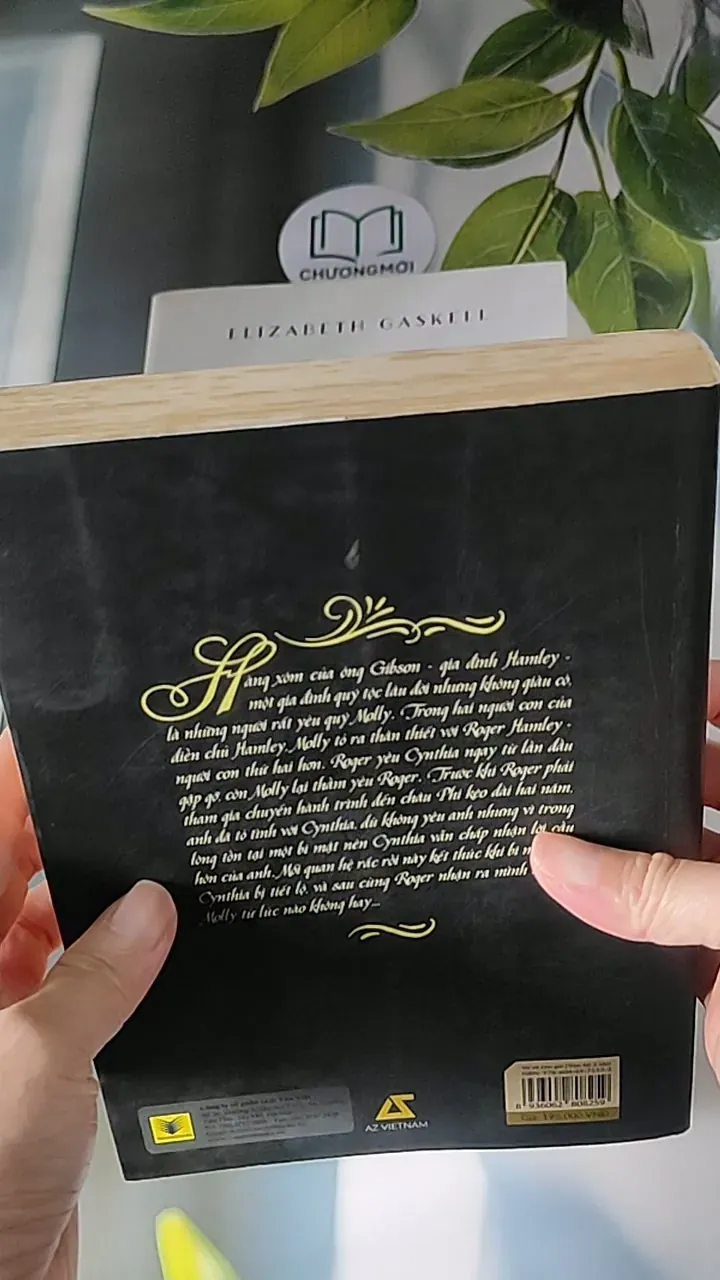 CHƯƠNGMỚI
ELIZABETH GASKELL
Hàng xóm của ông Gibson - gia đình Hamley -
một gia đình quý tộc lâu đời nhưng không giàu có,
là những người rất yêu quý Molly. Trong hai người con của
điền chủ Hamley, Molly tỏ ra thân thiết với Roger Hamley -
người con thứ hai hơn. Roger yêu Cynthia ngay từ lần đầu
gặp gỡ, còn Molly lại thầm yêu Roger. Trước khi Roger phải
tham gia chuyến hành trình đến châu Phi kéo dài hai năm,
anh đã tỏ tình với Cynthia, dù không yêu anh nhưng vì trong
lòng tồn tại một bí mật nên Cynthia vẫn chấp nhận lời cầu
hôn của anh. Mối quan hệ rắc rối này kết thúc khi bí
Cynthia bị tiết lộ, và sau cùng Roger nhận ra mình
Molly từ lúc nào không hay...
AZ VIETNAM
8 936062 808259